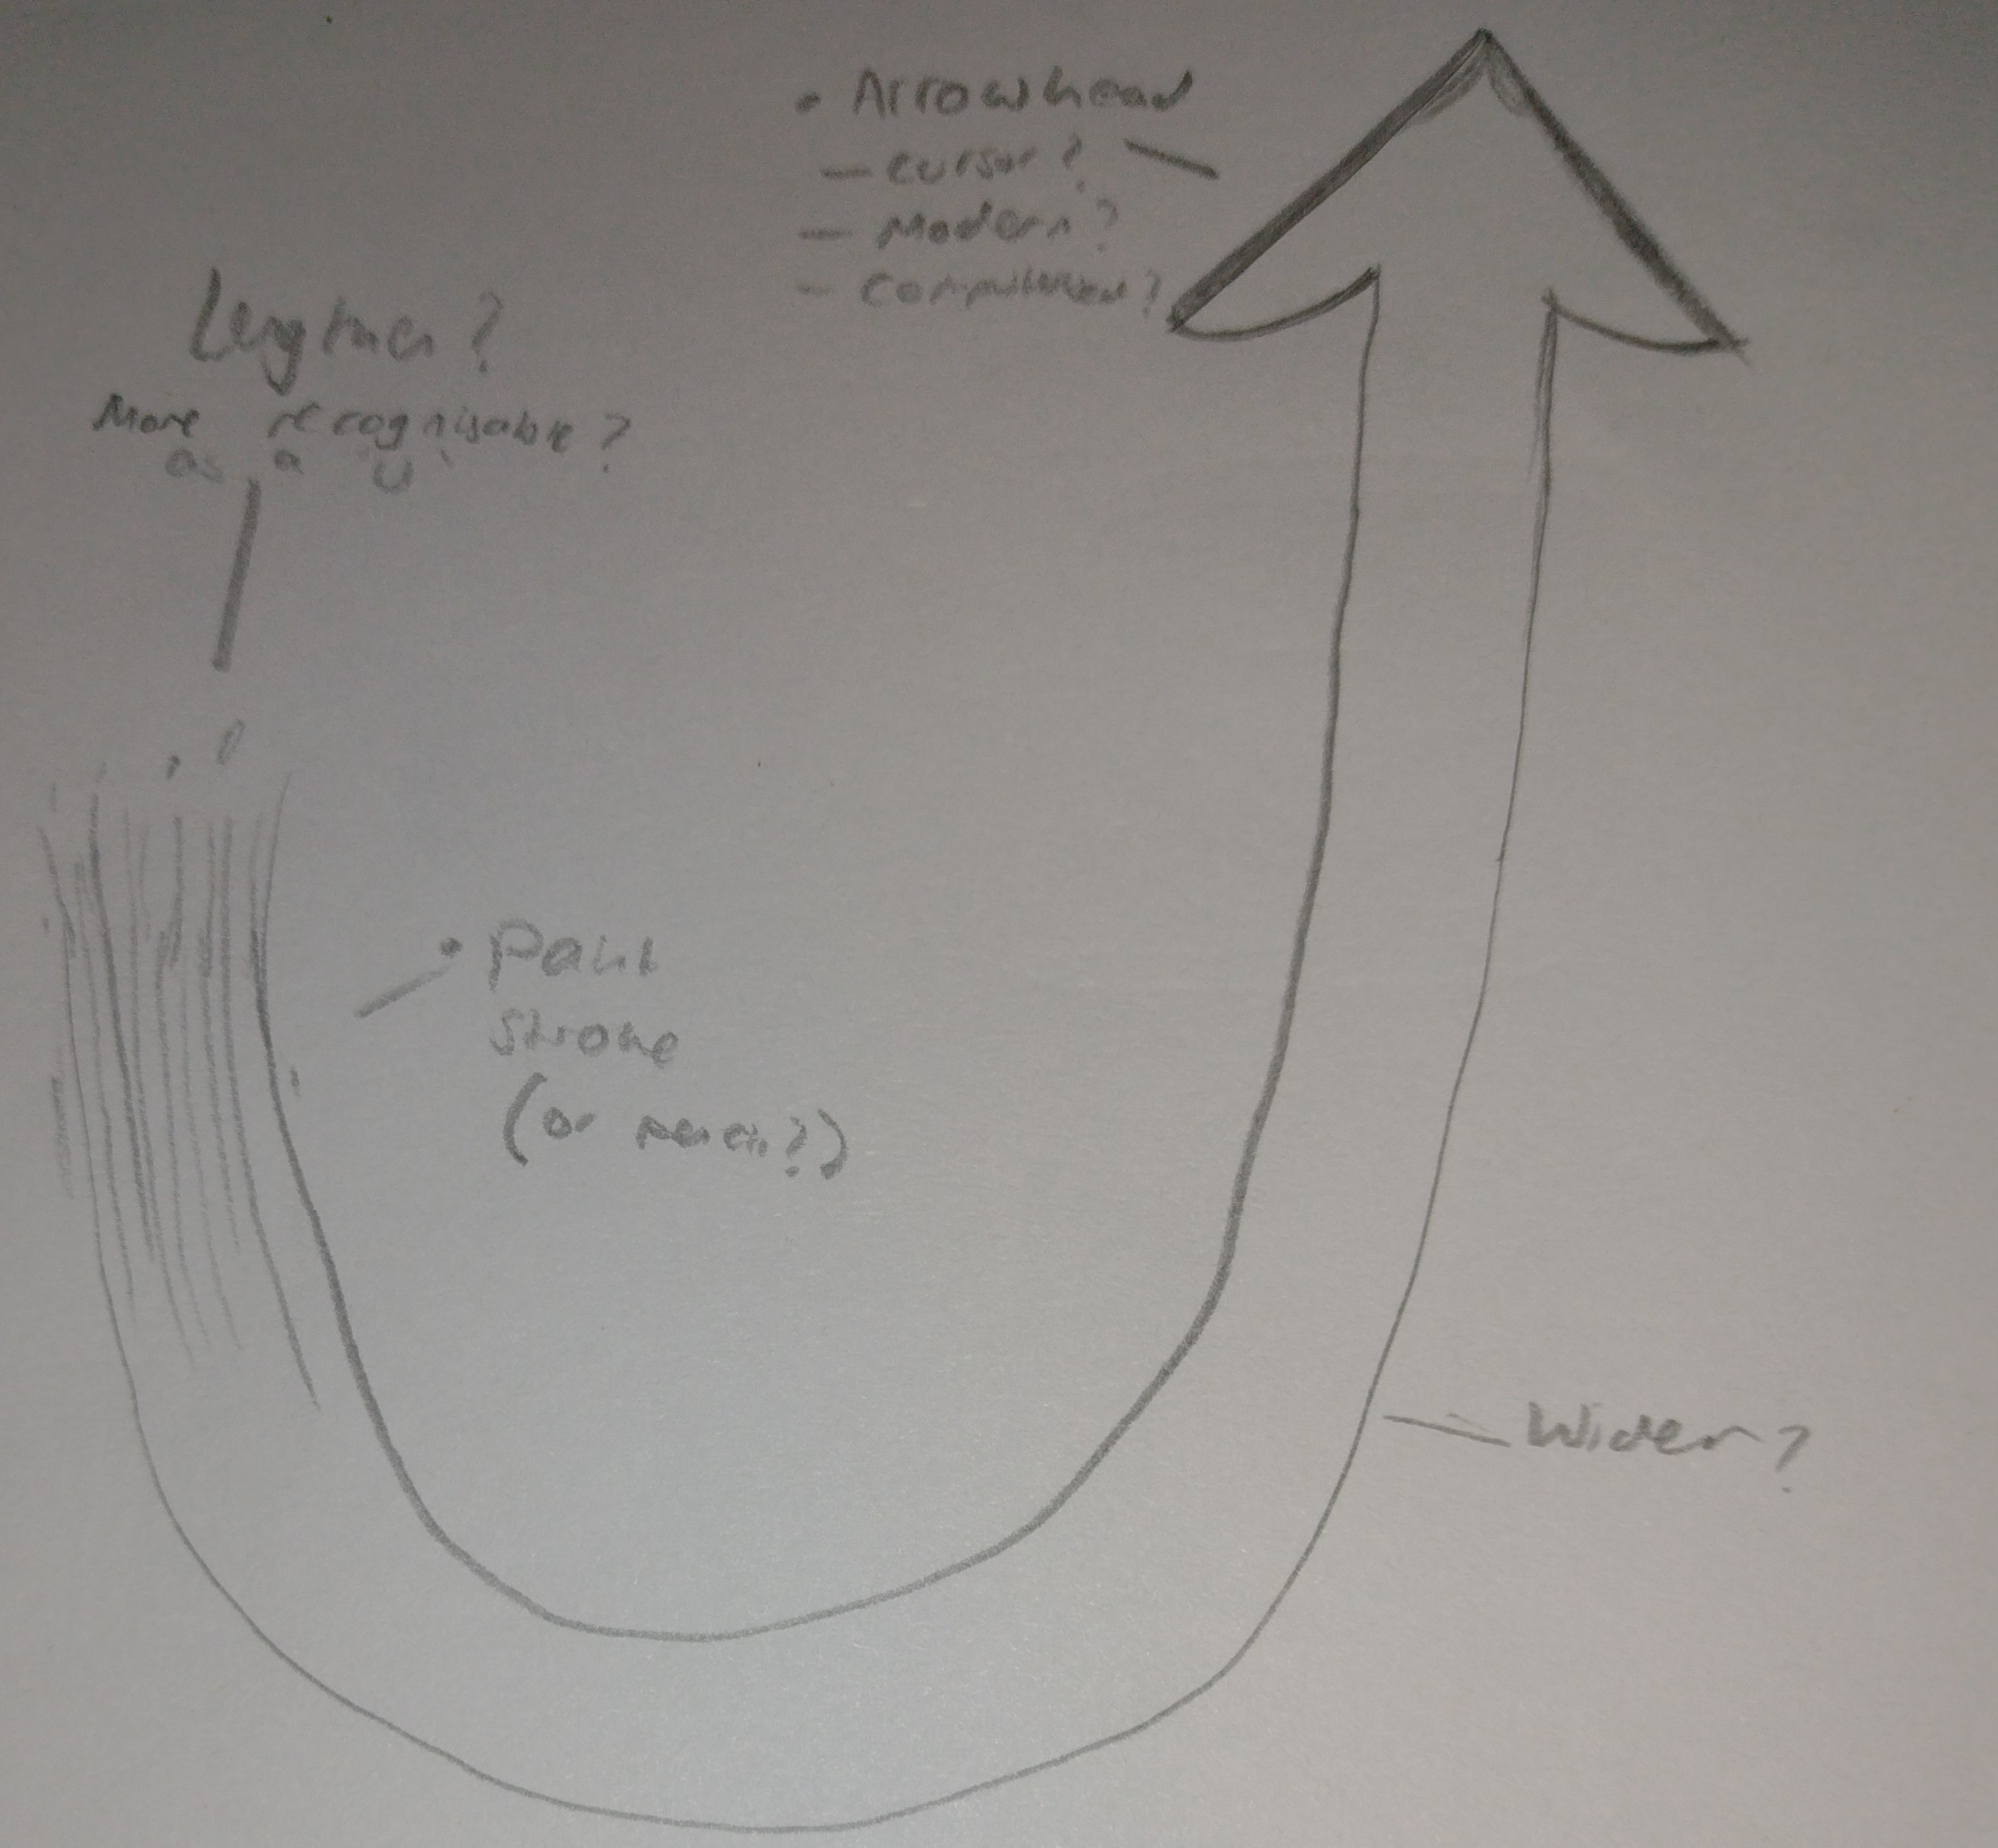 • Arrowhead
– Cursor?
– Modern?
– Computerised?
Lengthen?
More recognisable?
as a 'U'
• Paint
Stroke
(or pencil?)
Wider?